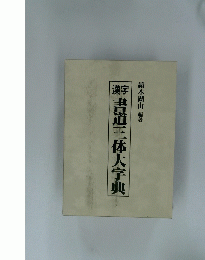 漢字
書道三体大字典
鈴木湖山 編著